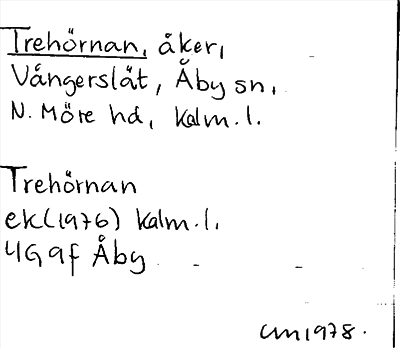 Trehörnan, åker,
Vångerslät, Åby sn,
N. Möre hd, Kalm. l.
Trehörnan
ek (1976) Kalm. l.
4G 9f Åby
CM 1978.